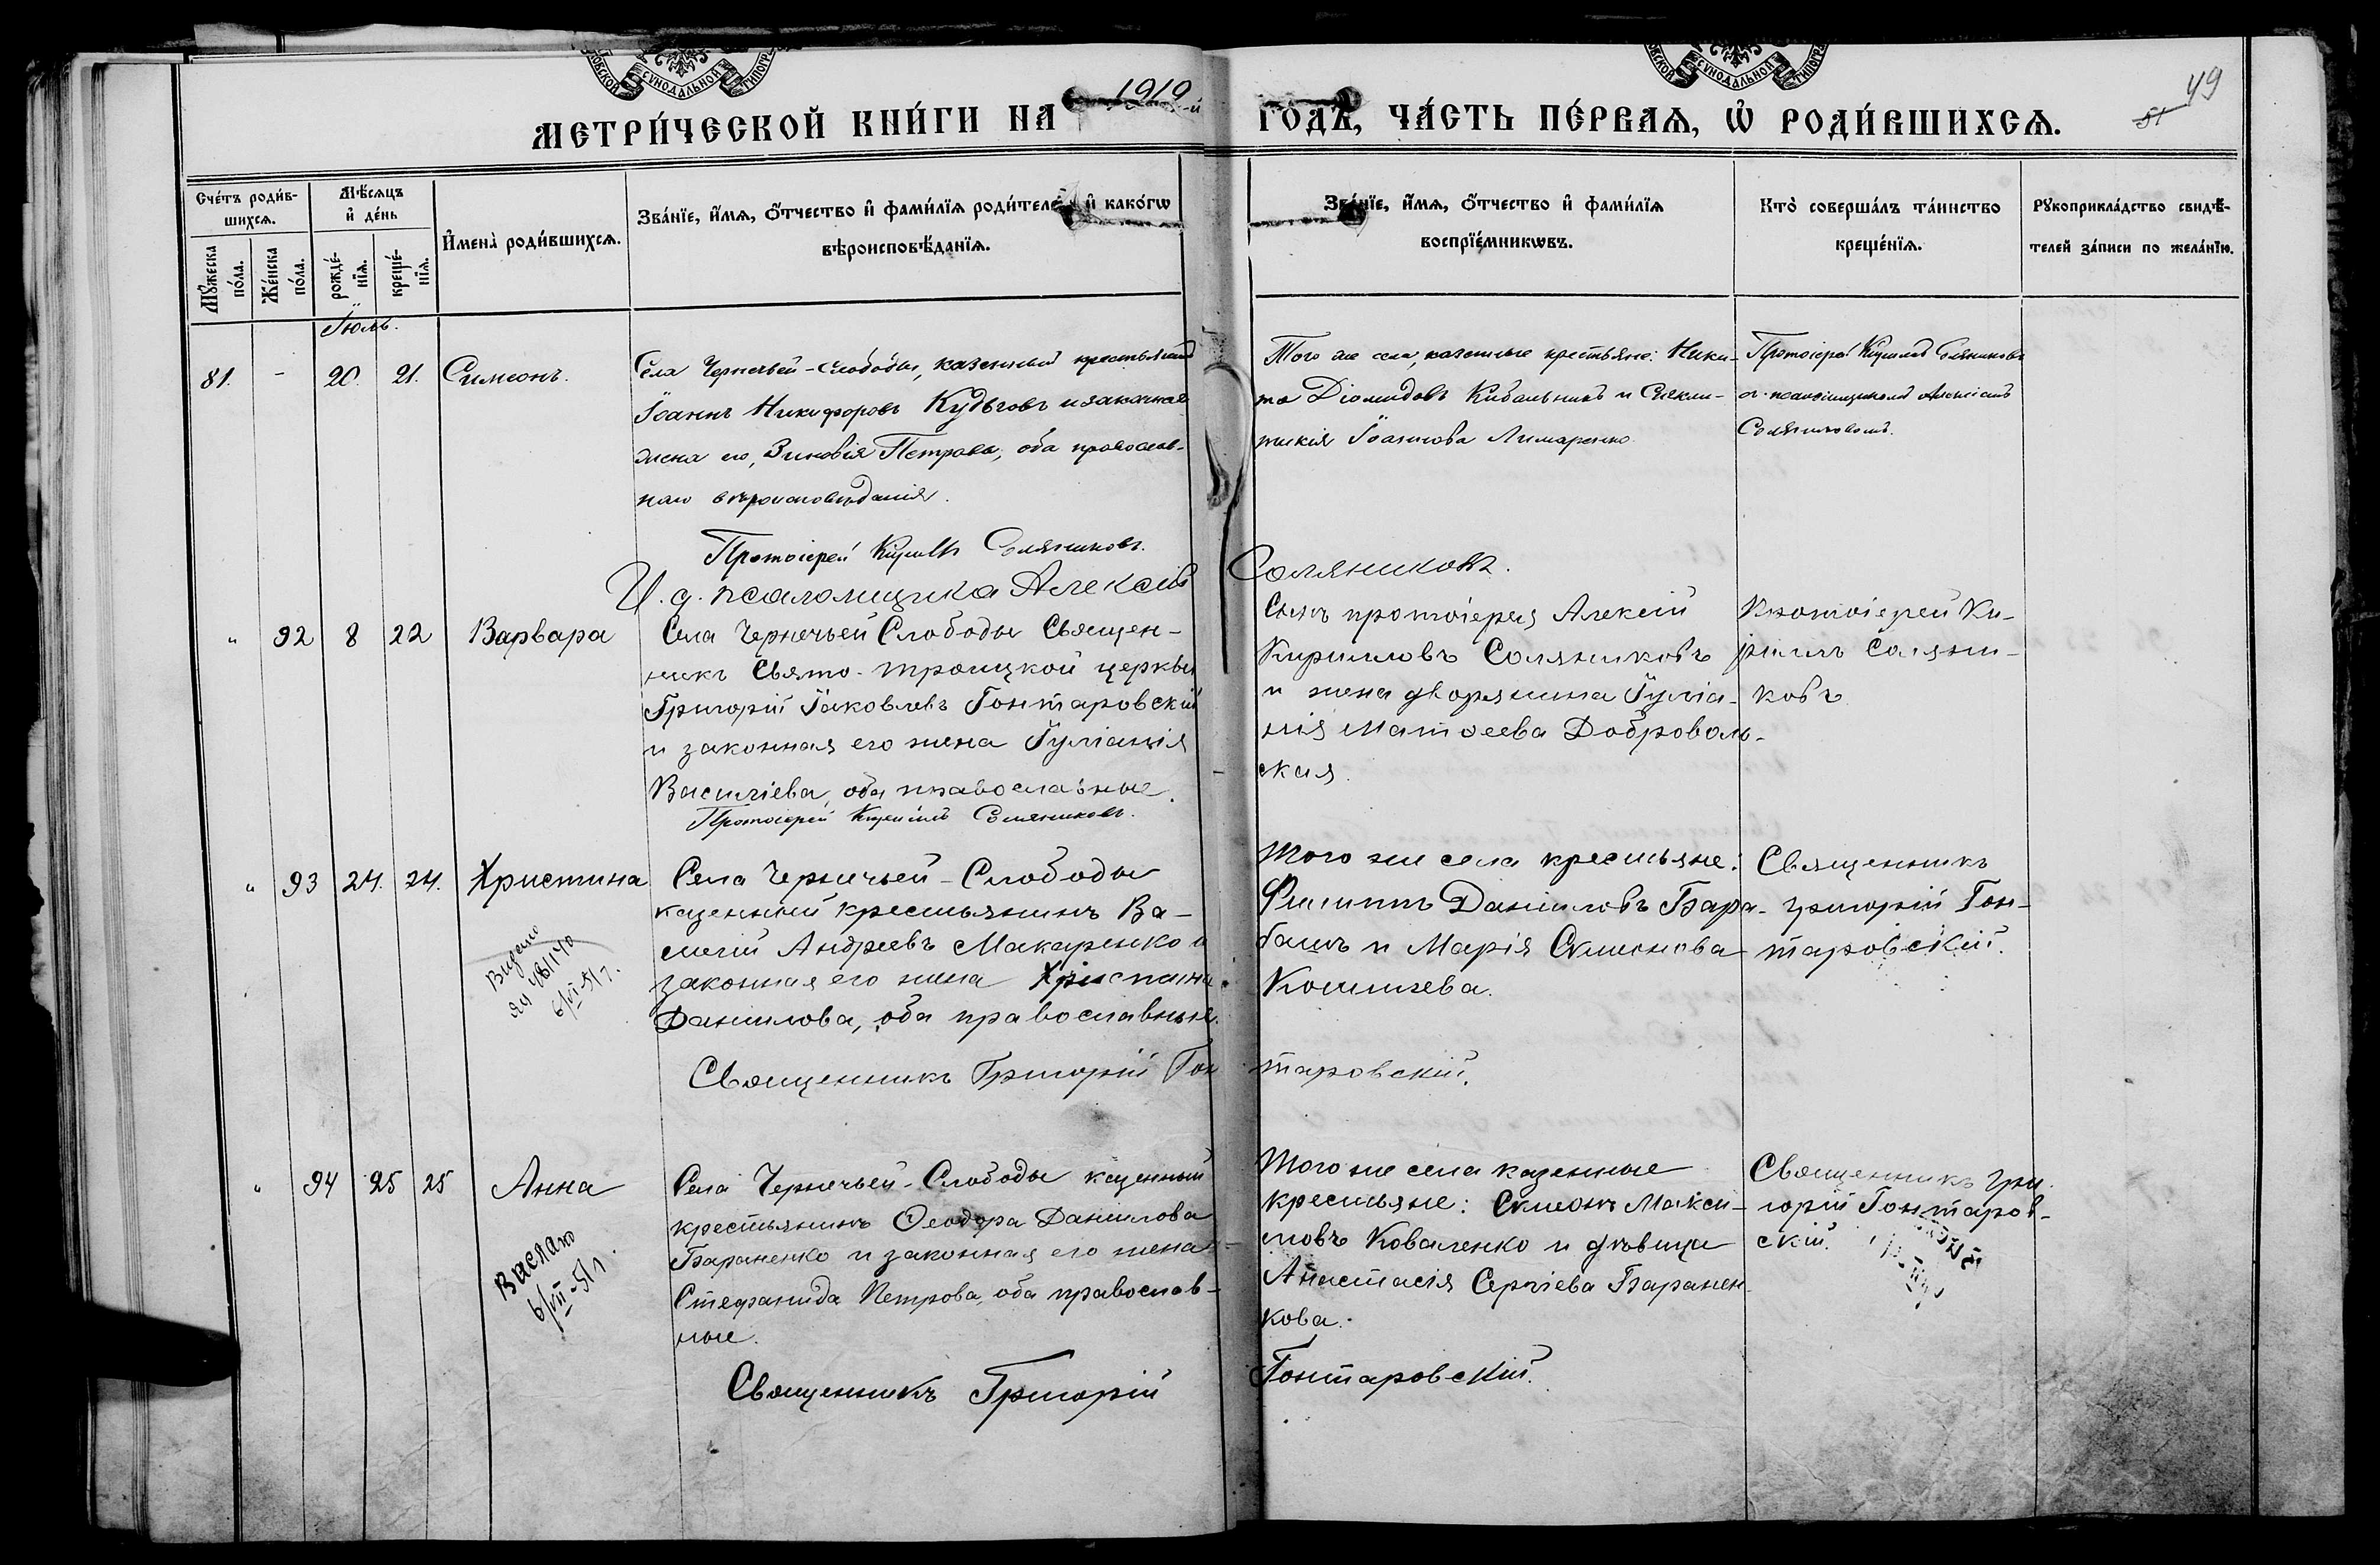 СѴНОДАЛЬНОЙ
СѴНОДАЛЬНОЙ
49
51
МЕТРИ́ЧЕСКОЙ КНИ́ГИ НА 1919-й ГО́ДЪ, ЧА́СТЬ ПЕ́РВАѦ, Ѡ҆ РОДИ́ВШИХСѦ.
Сче́тъ роди́в-
шихсѧ.
Мꙋ́жеска
по́ла.
Же́нска
по́ла.
Мѣ́сѧцъ
и҆ де́нь
рожде́-
нїѧ.
креще́-
нїѧ.
И҆мена̀ роди́вшихсѧ.
Зва́нїе, и҆́мѧ, ѻ҆́тчество и҆ фами́лїѧ роди́телей и҆ како́гѡ
вѣроисповѣ́данїѧ.
Зва́нїе, и҆́мѧ, ѻ҆́тчество и҆ фами́лїѧ
воспрїе́мникѡвъ.
Кто̀ соверша́лъ та́инство
креще́нїѧ.
Рꙋкоприкла́дство свидѣ́-
телей за́писи по жела́нїю.
Іюль.
81. - 20. 21. Симеонъ.
Села Чернечьей-Слободы, казенный крестьянинъ
Іоаннъ Никифоровъ Кудьговъ и законная
жена его, Зиновія Петрова, оба православ-
наго вѣроисповѣданія.
Того же села, казенные крестьяне: Ники-
та Діомидовъ Кибальникъ и Синкли-
тикія Іоаннова Лимаренко.
Протоіерей Кириллъ Соляниковъ
съ псаломщикомъ Алексіемъ
Соляниковымъ.
Протоіерей Кириллъ Соляниковъ.
И. д. псаломщика Алексій Соляниковъ.
" 92 8 22 Варвара
Села Чернечьей Слободы Священ-
никъ Свято-Троицкой церкви
Григорій Іаковлевъ Гонтаровскій
и законная его жена Іуліанія
Василіева, оба православные.
Сынъ протоіерея Алексій
Кирилловъ Соляниковъ
и жена дворянина Іуліа-
нія Матѳеева Доброволь-
ская.
Протоіерей Ки-
риллъ Соляни-
ковъ
Протоіерей Кириллъ Соляниковъ.
" 93 24. 24. Христина
Видано
6/VII-51 г.
Села Чернечьей-Слободы
казенный крестьянинъ Ва-
силій Андреевъ Макаренко и
законная его жена Христина
Данилова, оба православные.
Того же села крестьяне:
Филиппъ Даніиловъ Бара-
башъ и Марія Симеонова
Кошигева.
Священникъ
Григорій Гон-
таровскій.
Священникъ Григорій Гонтаровскій.
" 94 25 25 Анна
Вислано
6/VII-51 г.
Села Чернечьей-Слободы казенный
крестьянинъ Ѳеодора Данилова
Бараненко и законная его жена
Стефанида Петрова, оба православ-
ные.
Того же села казенные
крестьяне: Симеонъ Макси-
мовъ Коваленко и дѣвица
Анастасія Сергіева Баранен-
кова.
Священникъ Гри-
горій Гонтаров-
скій.
Священникъ Григорій Гонтаровскій.